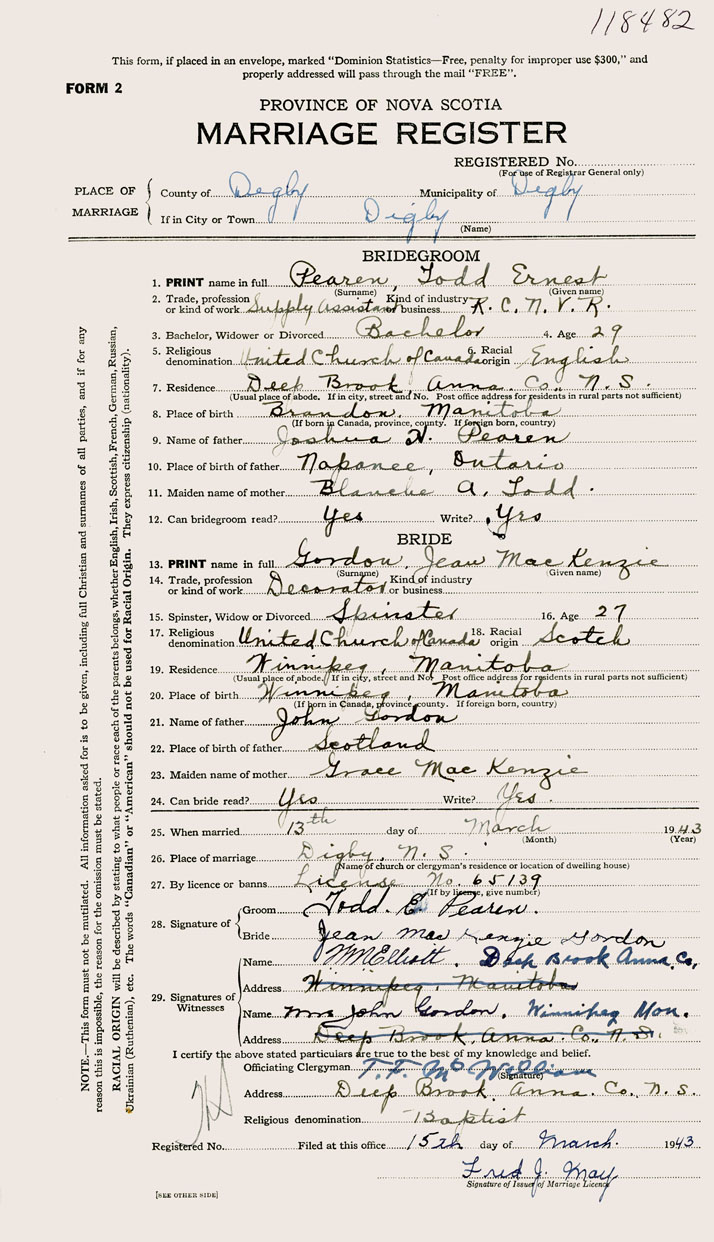 118482
This form, if placed in an envelope, marked “Dominion Statistics—Free, penalty for improper use $300,” and
properly addressed will pass through the mail “FREE”.
FORM 2
PROVINCE OF NOVA SCOTIA
MARRIAGE REGISTER
REGISTERED No.
(For use of Registrar General only)
PLACE OF MARRIAGE
County of Digby Municipality of Digby
If in City or Town Digby
(Name)
BRIDEGROOM
1. PRINT name in full Pearen, Todd Ernest
(Surname) (Given name)
2. Trade, profession or kind of work Supply Assistant Kind of industry or business R. C. N. V. R.
3. Bachelor, Widower or Divorced Bachelor 4. Age 29
5. Religious denomination United Church of Canada 6. Racial origin English
7. Residence Deep Brook, Anna. Co., N. S.
(Usual place of abode. If in city, street and No. Post office address for residents in rural parts not sufficient)
8. Place of birth Brandon, Manitoba
(If born in Canada, province, county. If foreign born, country)
9. Name of father Joshua N. Pearen
10. Place of birth of father Napanee, Ontario
11. Maiden name of mother Blanche A. Todd.
12. Can bridegroom read? Yes Write? Yes
BRIDE
13. PRINT name in full Gordon, Jean Mac Kenzie
(Surname) (Given name)
14. Trade, profession or kind of work Decorator Kind of industry or business
15. Spinster, Widow or Divorced Spinster 16. Age 27
17. Religious denomination United Church of Canada 18. Racial origin Scotch
19. Residence Winnipeg, Manitoba
(Usual place of abode. If in city, street and No. Post office address for residents in rural parts not sufficient)
20. Place of birth Winnipeg, Manitoba
(If born in Canada, province, county. If foreign born, country)
21. Name of father John Gordon
22. Place of birth of father Scotland
23. Maiden name of mother Grace Mac Kenzie
24. Can bride read? Yes Write? Yes.
25. When married 13th day of March 1943
(Month) (Year)
26. Place of marriage Digby, N. S.
(Name of church or clergyman’s residence or location of dwelling house)
27. By licence or banns License No. 65139
(If by license, give number)
28. Signature of
Groom Todd. E. Pearen.
Bride Jean Mac Kenzie Gordon
29. Signatures of Witnesses
Name Elliott. Deep Brook Anna. Co,
Address Winnipeg, Manitoba
Name Mrs John Gordon. Winnipeg Man.
Address Deep Brook, Anna. Co., N. S.
I certify the above stated particulars are true to the best of my knowledge and belief.
Officiating Clergyman T. F. McWilliam
(Signature)
Address Deep Brook, Anna. Co., N. S.
Religious denomination Baptist
Registered No. Filed at this office 15th day of March. 1943
Fred J. May
Signature of Issuer of Marriage Licence
[SEE OTHER SIDE]
NOTE.—This form must not be mutilated. All information asked for is to be given, including full Christian and surnames of all parties, and if for any
reason this is impossible, the reason for the omission must be stated.
RACIAL ORIGIN will be described by stating to what people or race each of the parents belongs, whether English, Irish, Scottish, French, German, Russian,
Ukrainian (Ruthenian), etc. The words “Canadian” or “American” should not be used for Racial Origin. They express citizenship (nationality).